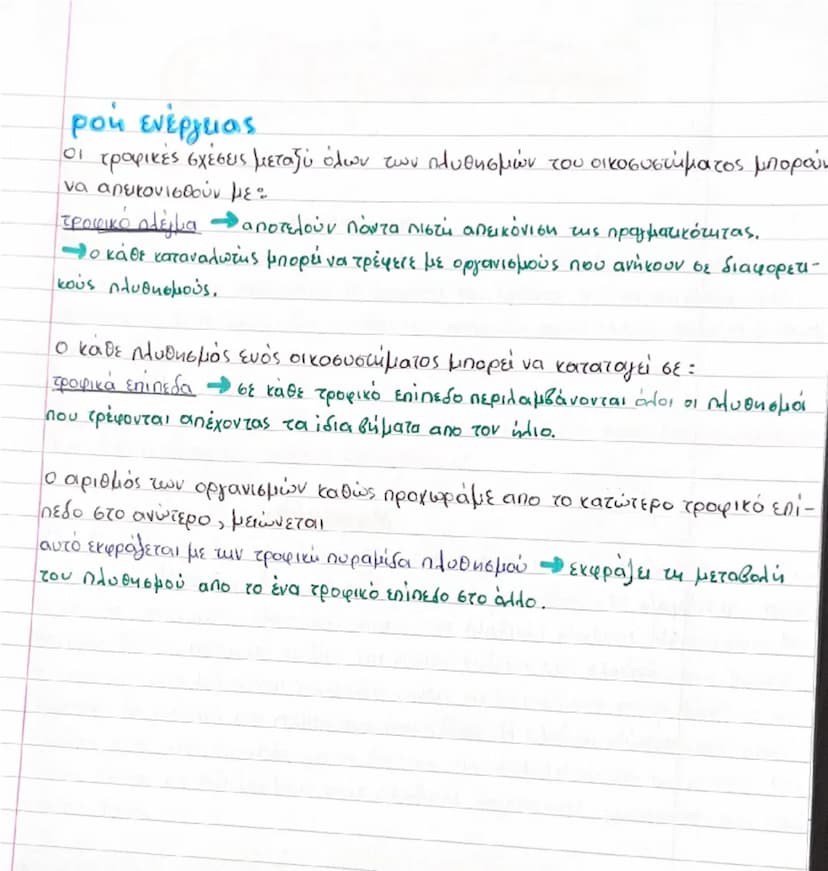 ροή ενέργειας
οι τροφικές σχέσεις μεταξύ όλων των πλυθησμών του οικοσυστήματος μπορούν
να απεικονισθούν με:
τροφικό πλέγμα → αποτελούν πάντα πιστή απεικόνιση της πραγματικότητας.
→ ο κάθε καταναλωτής μπορεί να τρέφετε με οργανισμούς που ανήκουν σε διαφορετι-
κούς πλυθησμούς.
ο κάθε πλυθησμός ενός οικοσυστήματος μπορεί να καταταγεί σε:
τροφικά επίπεδα → σε κάθε τροφικό επίπεδο περιλαμβάνονται όλοι οι πλυθησμοί
που τρέφονται απέχοντας τα ίδια βήματα απο τον ήλιο.
ο αριθμός των οργανισμών καθώς προχωράμε απο το κατώτερο τροφικό επί-
πεδο στο ανώτερο, μειώνεται
αυτό εκφράζεται με την τροφική πυραμίδα πλυθησμού → εκφράζει τη μεταβολή
του πλυθησμού απο το ένα τροφικό επίπεδο στο άλλο.